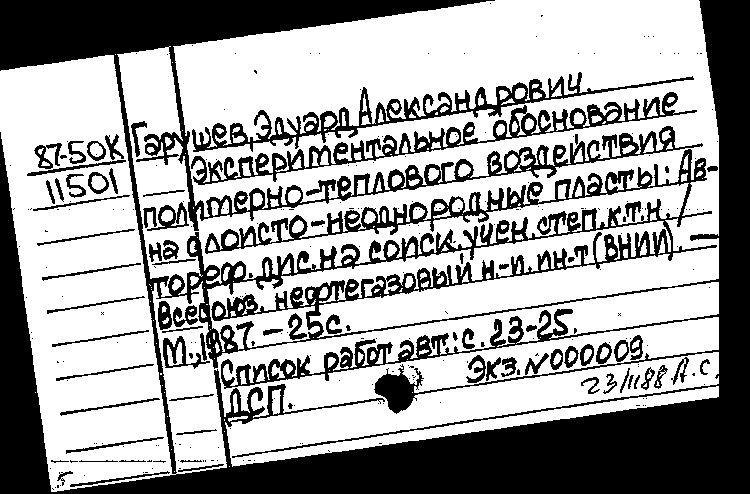 87-50К
11501
Гарушев, Эдуард Александрович.
Экспериментальное обоснование
полимерно-теплового воздействия
на слоисто-неоднородные пласты: Ав-
тореф. дис. на соиск. учен. степ. к.т.н. /
Всесоюз. нефтегазовый н.-и. ин-т (ВНИИ). —
М., 1987. - 25с.
Список работ авт.: с. 23-25.
Экз. №000009.
ДСП.
23/1188 А.С.
5